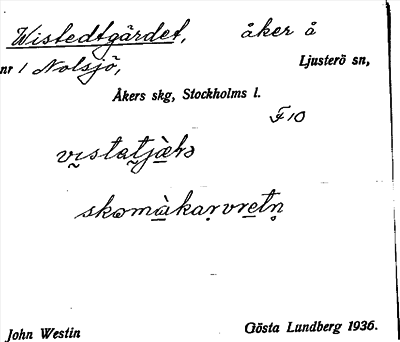 Wistedtgärdet, åker å
nr 1 Nolsjö, Ljusterö sn,
Åkers skg, Stockholms l.
F10
vi̬stat̬jæ̀kə
skomàkaṛvretṇ
John Westin Gösta Lundberg 1936.